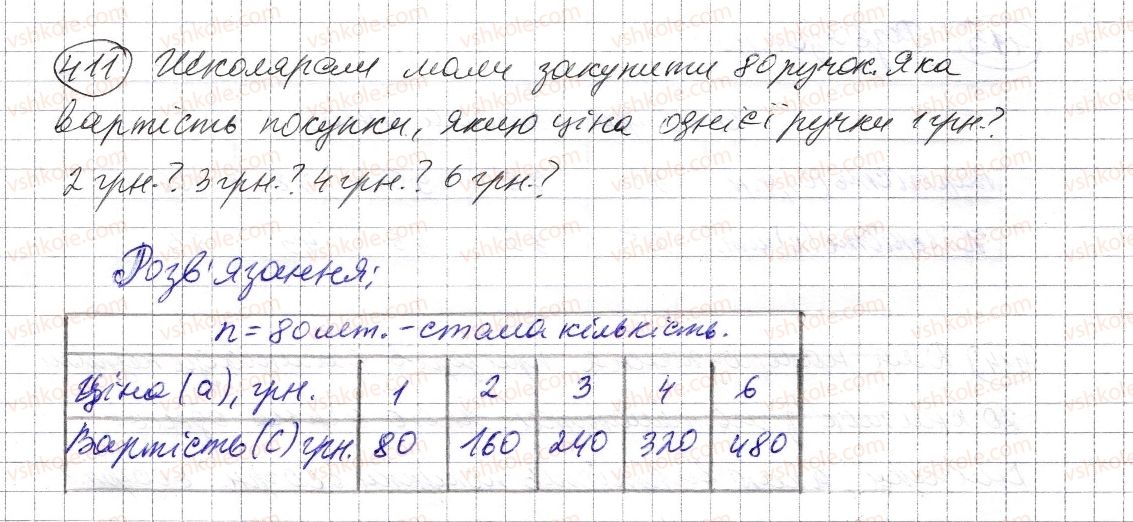 411 Школярам мали закупити 80 ручок. Яка
вартість покупки, якщо ціна однієї ручки 1 грн.?
2 грн.? 3 грн.? 4 грн.? 6 грн.?
Розв'язання:
n = 80 шт. - стала кількість.
Ціна (а), грн. 1 2 3 4 6
Вартість (С) грн. 80 160 240 320 480